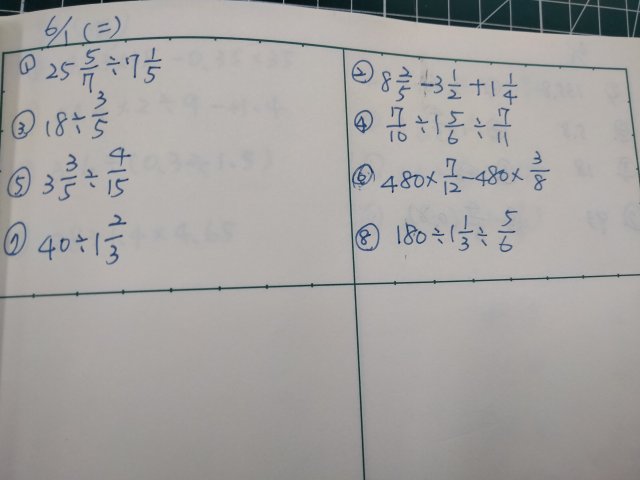 6/1 (二)
① 25 5/7 ÷ 7 1/5
② 8 2/5 - 3 1/2 + 1 1/4
③ 18 ÷ 3/5
④ 7/10 ÷ 1 5/6 ÷ 7/11
⑤ 3 3/5 ÷ 4/15
⑥ 480 × 7/12 - 480 × 3/8
⑦ 40 ÷ 1 2/3
⑧ 180 ÷ 1 1/3 ÷ 5/6